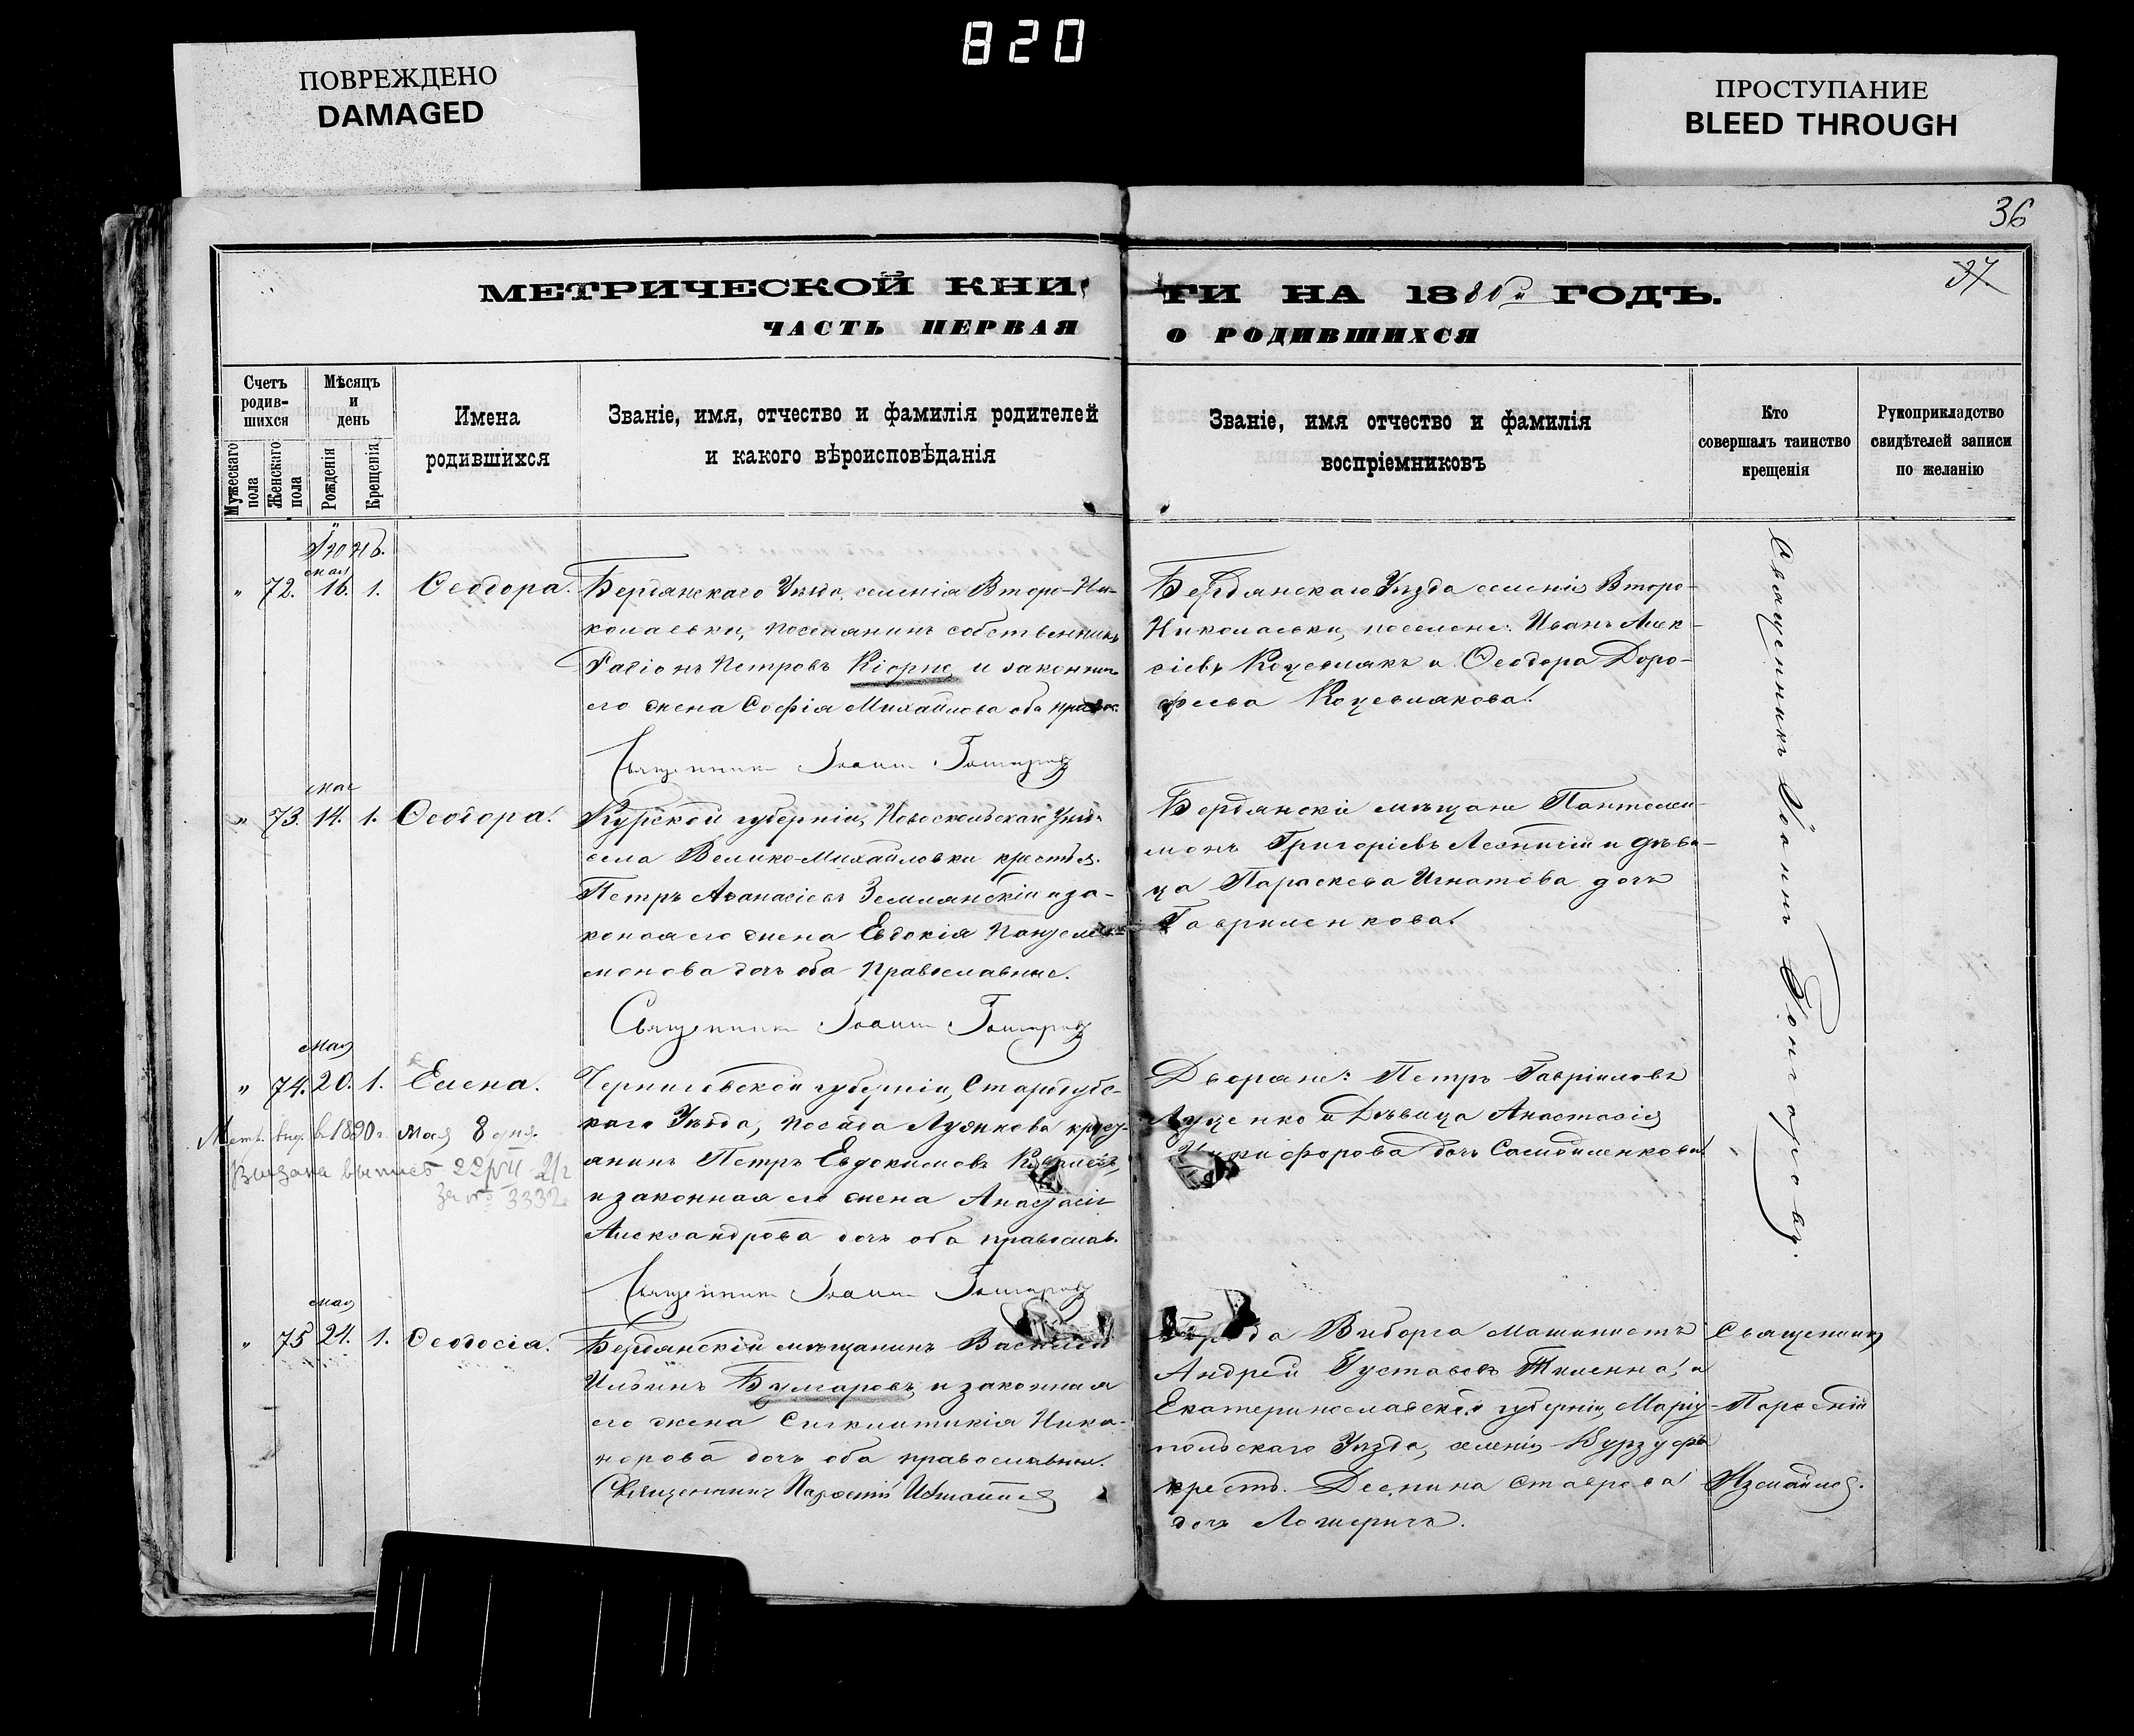 820
ПОВРЕЖДЕНО
DAMAGED
ПРОСТУПАНИЕ
BLEED THROUGH
36
37
МЕТРИЧЕСКОЙ КНИ
ГИ НА 1880й ГОДЪ.
ЧАСТЬ ПЕРВАЯ
О РОДИВШИХСЯ
Счетъ родив-шихся
Мужескаго пола
Женскаго пола
Мѣсяцъ и день
Рожденія
Крещенія
Имена родившихся
Званіе, имя, отчество и фамилія родителей
и какого вѣроисповѣданія
Званіе, имя отчество и фамилія
воспріемниковъ
Кто
совершалъ таинство
крещенія
Рукоприкладство
свидѣтелей записи
по желанію
Іюнь.
мая
" 72. 16. 1. Ѳеодора.
Бердянскаго Уѣзда, селенія Второ-Ни-
колаевки, поселянинъ собственникъ
Петровъ Кіорпе, и законная
его жена Софія Михайлова оба правос.
Священникъ Іоаннъ
Бердянскаго Уѣзда селенія Второ-
Николаевки, поселяне: Иванъ Алек-
сіевъ и Ѳеодора Доро-
феева
Священникъ Іоаннъ
мая
" 73. 14. 1. Ѳеодора.
Курской губерніи, Новооскольскаго Уѣзда
села Велико-Михайловки крестья.
Петръ Аѳанасіевъ Землянскій и за-
коная его жена Евдокія
монова дочь оба православные.
Священникъ Іоаннъ
Бердянскіе мѣщане Пантелей-
монъ Григоріевъ Лесничій и дѣви-
ца Параскева Игнатова дочь
Гавриленкова.
мая
" 74. 20. 1. Елена.
Метр. выд. в 1890 г. Мая 8 дня.
Выдана выпись 22/VII
за № 3332
Черниговской губерніи, Стародубс-
каго Уѣзда, посада Лужкова кресть-
янинъ Петръ Евдокимовъ
и законная его жена Анастасія
Александрова дочь оба православ.
Священникъ Іоаннъ
Дворяне: Петръ Гавріиловъ
Луценко и Дѣвица Анастасія
Никифорова дочь Самойленкова.
мая
" 75 21. 1. Ѳеодосія.
Бердянскій мѣщанинъ Василій
Ильинъ Булгаровъ, и законная
его жена СинклитикіяНика-
норова дочь оба православные.
Священникъ Измаилов
Города Виборга Машинистъ
Андрей Густавовъ и
Екатеринославской губерніи, Маріу-
польскаго Уѣзда, селенія
крест. Деспина Ставрова
дочь
Священникъ
Измаилов.